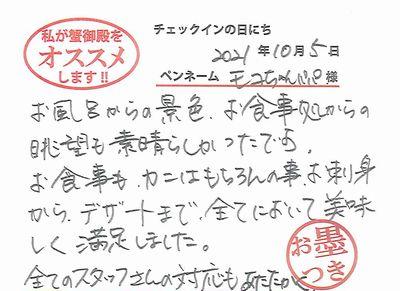 私が蟹御殿を
オススメ
します!!
チェックインの日にち
2021年10月5日
ペンネーム モコちゃんパパ様
お風呂からの景色、お食事処からの
眺望も素晴らしかったです。
お食事も、カニはもちろんの事、お刺身
から、デザートまで、全てにおいて美味
しく満足しました。
全てのスタッフさんの対応もあたたかく
お墨つき